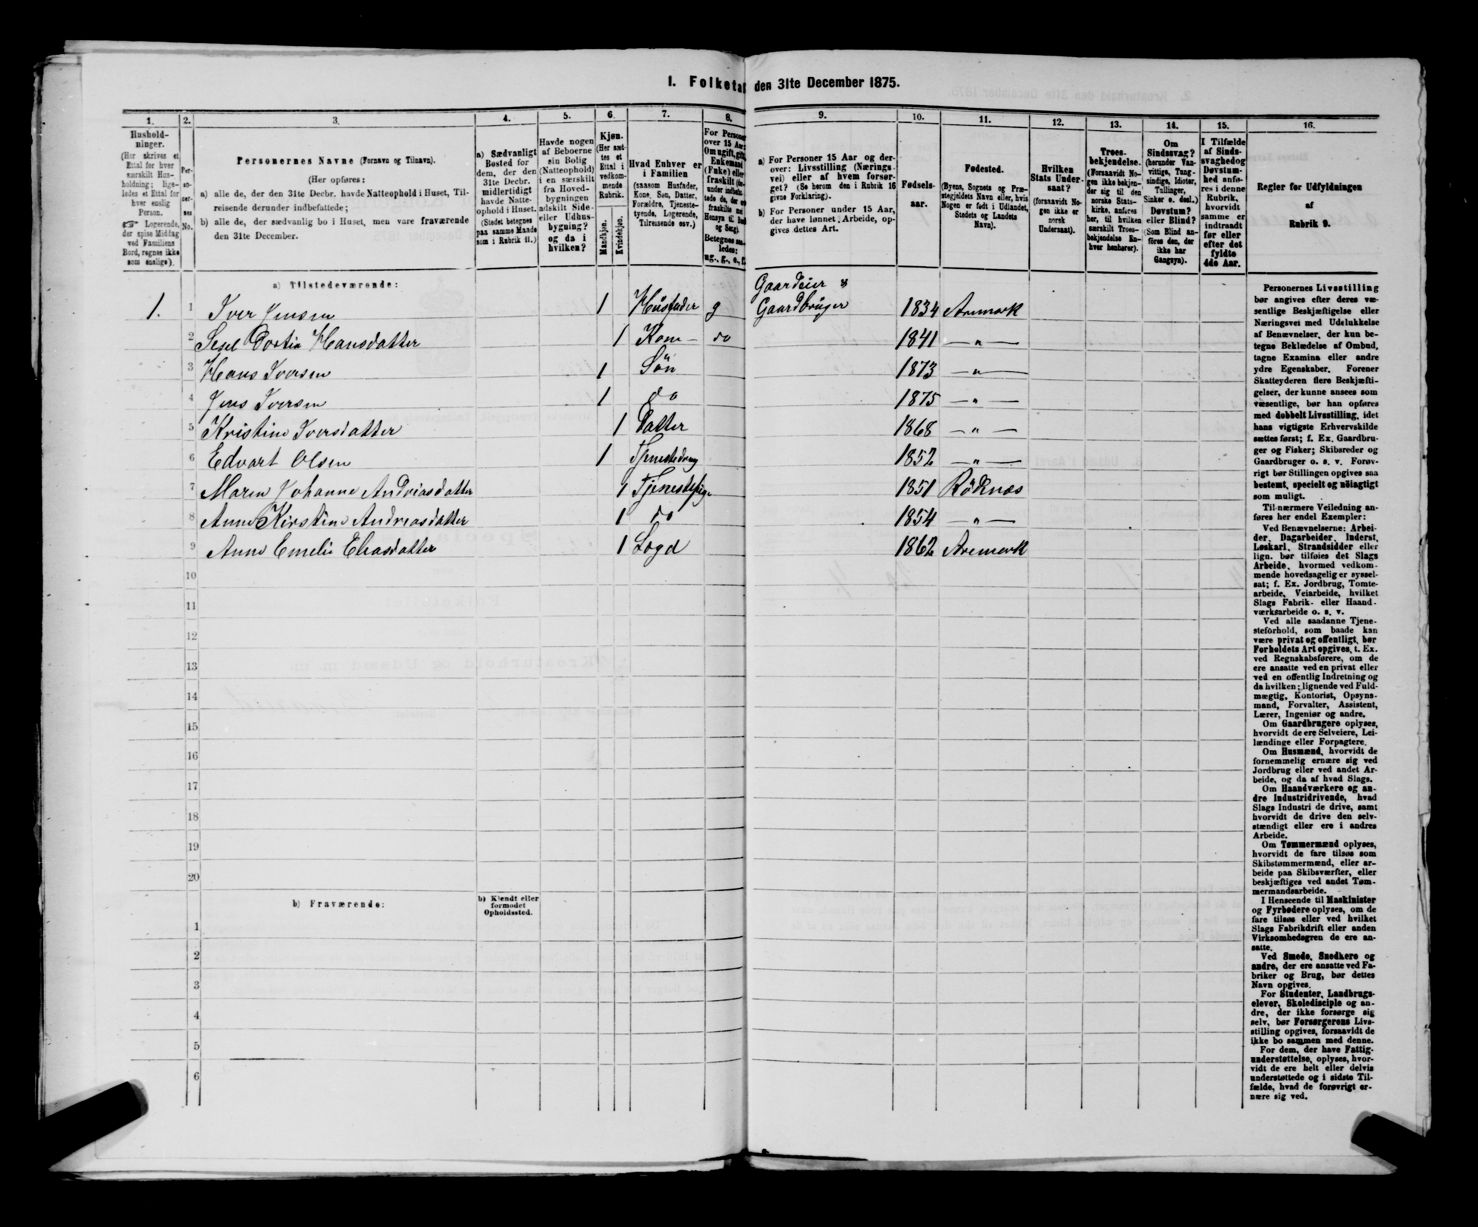 I. Folketal den 31te December 1875.
1.
Hushold-
ninger.
(Her skrives et
Ettal for hver
særskilt Hus-
holdning; lige-
ledes et Ettal for
hver enslig
Person.
☞ Logerende,
der spise Middag
ved Familiens
Bord, regnes ikke
som enslige).
2.
Per-
so-
ner-
nes
No.
3.
Personernes Navne (Fornavn og Tilnavn).
(Her opføres:
a) alle de, der den 31te Decbr. havde Natteophold i Huset, Til-
reisende derunder indbefattede;
b) alle de, der sædvanlig bo i Huset, men vare fraværende
den 31te December.
4.
a) Sædvanligt
Bosted for
dem, der den
31te Decbr.
midlertidigt
havde Natte-
ophold i Huset.
(Stedet betegnes
paa samme Maade
som i Rubrik 11.)
5.
Havde nogen
af Beboerne
sin Bolig
(Natteophold)
i en særskilt
fra Hoved-
bygningen
adskilt Side-
eller Udhus-
bygning?
og da i
hvilken?
6.
Kjøn.
(Her sæt-
tes et
Ettal i
vedkom-
mende
Rubrik.
Mandkjøn.
Kvindekjøn.
7.
Hvad Enhver er
i Familien
(saasom Husfader,
Kone, Søn, Datter,
Forældre, Tjeneste-
tyende, Logerende,
Tilreisende osv.)
8.
For Personer
over 15 Aar:
Om ugift, gift,
Enkemand
(Enke) eller
fraskilt
Betegnes saa-
ledes:
ug., g., e., f.
9.
a) For Personer 15 Aar og der-
over: Livsstilling (Nærings-
vei) eller af hvem forsør-
get? (Se herom den i Rubrik 16
givne Forklaring).
b) For Personer under 15 Aar,
der have lønnet Arbeide, op-
gives dettes Art.
10.
Fødsels-
aar.
11.
Fødested.
(Byens, Sognets og Præ-
stegjeldets Navn eller, hvis
Nogen er født i Udlandet,
Stedets og Landets
Navn).
12.
Hvilken
Stats Under-
saat?
(forsaavidt No-
gen ikke er
norsk
Undersaat).
13.
Troes-
bekjendelse.
(Forsaavidt No-
gen ikke bekjen-
der sig til den
norske Stats-
kirke, anføres
her, til hvilken
særskilt Troes-
bekjendelse En-
hver henhører).
14.
Om
Sindssvag?
(herunder Van-
vittige, Tung-
sindige, Idioter,
Tullinger,
Sinker o. desl.)
Døvstum?
eller Blind?
(Som Blind an-
føres den, der
ikke har
Gangsyn).
15.
I Tilfælde
af Sinds-
svaghed og
Døvstum-
hed anfø-
res i denne
Rubrik,
hvorvidt
samme er
indtraadt
før eller
efter det
fyldte
4de Aar.
16.
Regler for Udfyldningen
af
Rubrik 9.
a) Tilstedeværende:
1. 1 Iver Jensen 1 Husfader g Gaardeier & Gaardbruger 1834 Aremark
2 Dortia Hansdatter 1 Kone do 1841 —"—
3 Hans Iversen 1 Søn 1873 —"—
4 Jens Iversen 1 do 1875 —"—
5 Kristine Iversdatter 1 Datter 1868 —"—
6 Edvart Olsen 1 Tjenestedreng 1852 —"—
7 Maren Johanne Andriasdatter 1 Tjenestepige 1851 Rødenæs
8 Anne Kirstine Andreasdatter 1 do 1854 —"—
9 Anne Emelie Eliasdatter 1 Logd 1862 Aremark
10
11
12
13
14
15
16
17
18
19
20
b) Fraværende:
b) Kjendt eller
formodet
Opholdssted.
1
2
3
4
5
6
Personernes Livsstilling
bør angives efter deres væ-
sentlige Beskjæftigelse eller
Næringsvei med Udelukkelse
af Benævnelser, der kun be-
tegne Beklædelse af Ombud,
tagne Examina eller andre
ydre Egenskaber. Forener
Skatteyderen flere Beskjæfti-
gelser, der kunne ansees som
væsentlige, bør han opføres
med dobbelt Livsstilling, idet
hans vigtigste Erhvervskilde
sættes først; f. Ex. Gaardbru-
ger og Fisker; Skibsreder og
Gaardbruger o. s. v. Forøv-
rigt bør Stillingen opgives saa
bestemt, specielt og nøiagtigt
som muligt.
Til nærmere Veiledning an-
føres her endel Exempler:
Ved Benævnelserne: Arbei-
der, Dagarbeider, Inderst,
Løskarl, Strandsidder eller
lign. bør tilføies det Slags
Arbeide, hvormed vedkom-
mende hovedsagelig er syssel-
sat; f. Ex. Jordbrug, Tomte-
arbeide, Veiarbeide, hvilket
Slags Fabrik- eller Haand-
værksarbeide o. s. v.
Ved alle saadanne Tjene-
steforhold, som baade kan
være privat og offentligt, bør
Forholdets Art opgives, t. Ex.
ved Regnskabsførere, om de
ere ansatte ved en privat eller
ved en offentlig Indretning og
da hvilken; lignende ved Fuld-
mægtig, Kontorist, Opsyns-
mand, Forvalter, Assistent,
Lærer, Ingeniør og andre.
Om Gaardbrugere oplyses,
hvorvidt de ere Selveiere, Lei-
lændinge eller Forpagtere.
Om Husmænd, hvorvidt de
fornemmelig ernære sig ved
Jordbrug eller ved andet Ar-
beide, og da af hvad Slags.
Om Haandværkere og an-
dre Industridrivende, hvad
Slags Industri de drive, samt
hvorvidt de drive den selv-
stændigt eller ere i andres
Arbeide.
Om Tømmermænd oplyses,
hvorvidt de fare tilsøs som
Skibstømmermænd, eller ar-
beide paa Skibsværfter, eller
beskjæftiges ved andet Tøm-
mermandsarbeide.
I Henseende til Maskinister
og Fyrbødere oplyses, om de
fare tilsøs eller ved hvilket
Slags Fabrikdrift eller anden
Virksomhedsgren de ere an-
satte.
Ved Smede, Snedkere og
andre, der ere ansatte ved Fa-
briker og Brug, bør dettes
Navn opgives.
For Studenter, Landbrugs-
elever, Skoledisciple og an-
dre, der ikke forsørge sig
selv, bør Forsørgerens Livs-
stilling opgives, forsaavidt de
ikke bo sammen med denne.
For dem, der have Fattig-
understøttelse, oplyses, hvor-
vidt de ere helt eller delvis
understøttede og i sidste Til-
fælde, hvad de forøvrigt er-
nære sig ved.